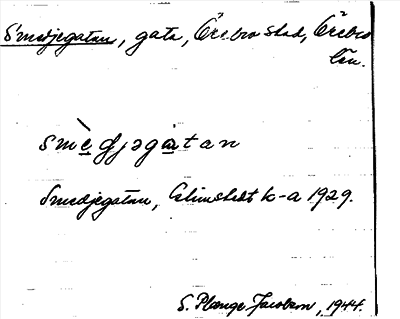 Smedjegatan, gata, Örebro stad, Örebro
län.
smèdjəgatan
Smedjegatan, Elimstedt k-a 1929.
S. Plænge Jacobson, 1944.